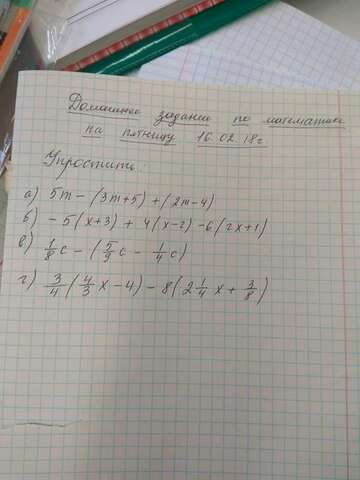 Домашнее задание по математике
на пятницу 16.02.18г.
Упростить:
а) 5m - (3m+5) + (2m-4)
б) -5(x+3) + 4(x-2) -6(2x+1)
в) 1/8 c - (5/9 c - 1/4 c)
г) 3/4 (4/3 x - 4) - 8(2 1/4 x + 3/8)